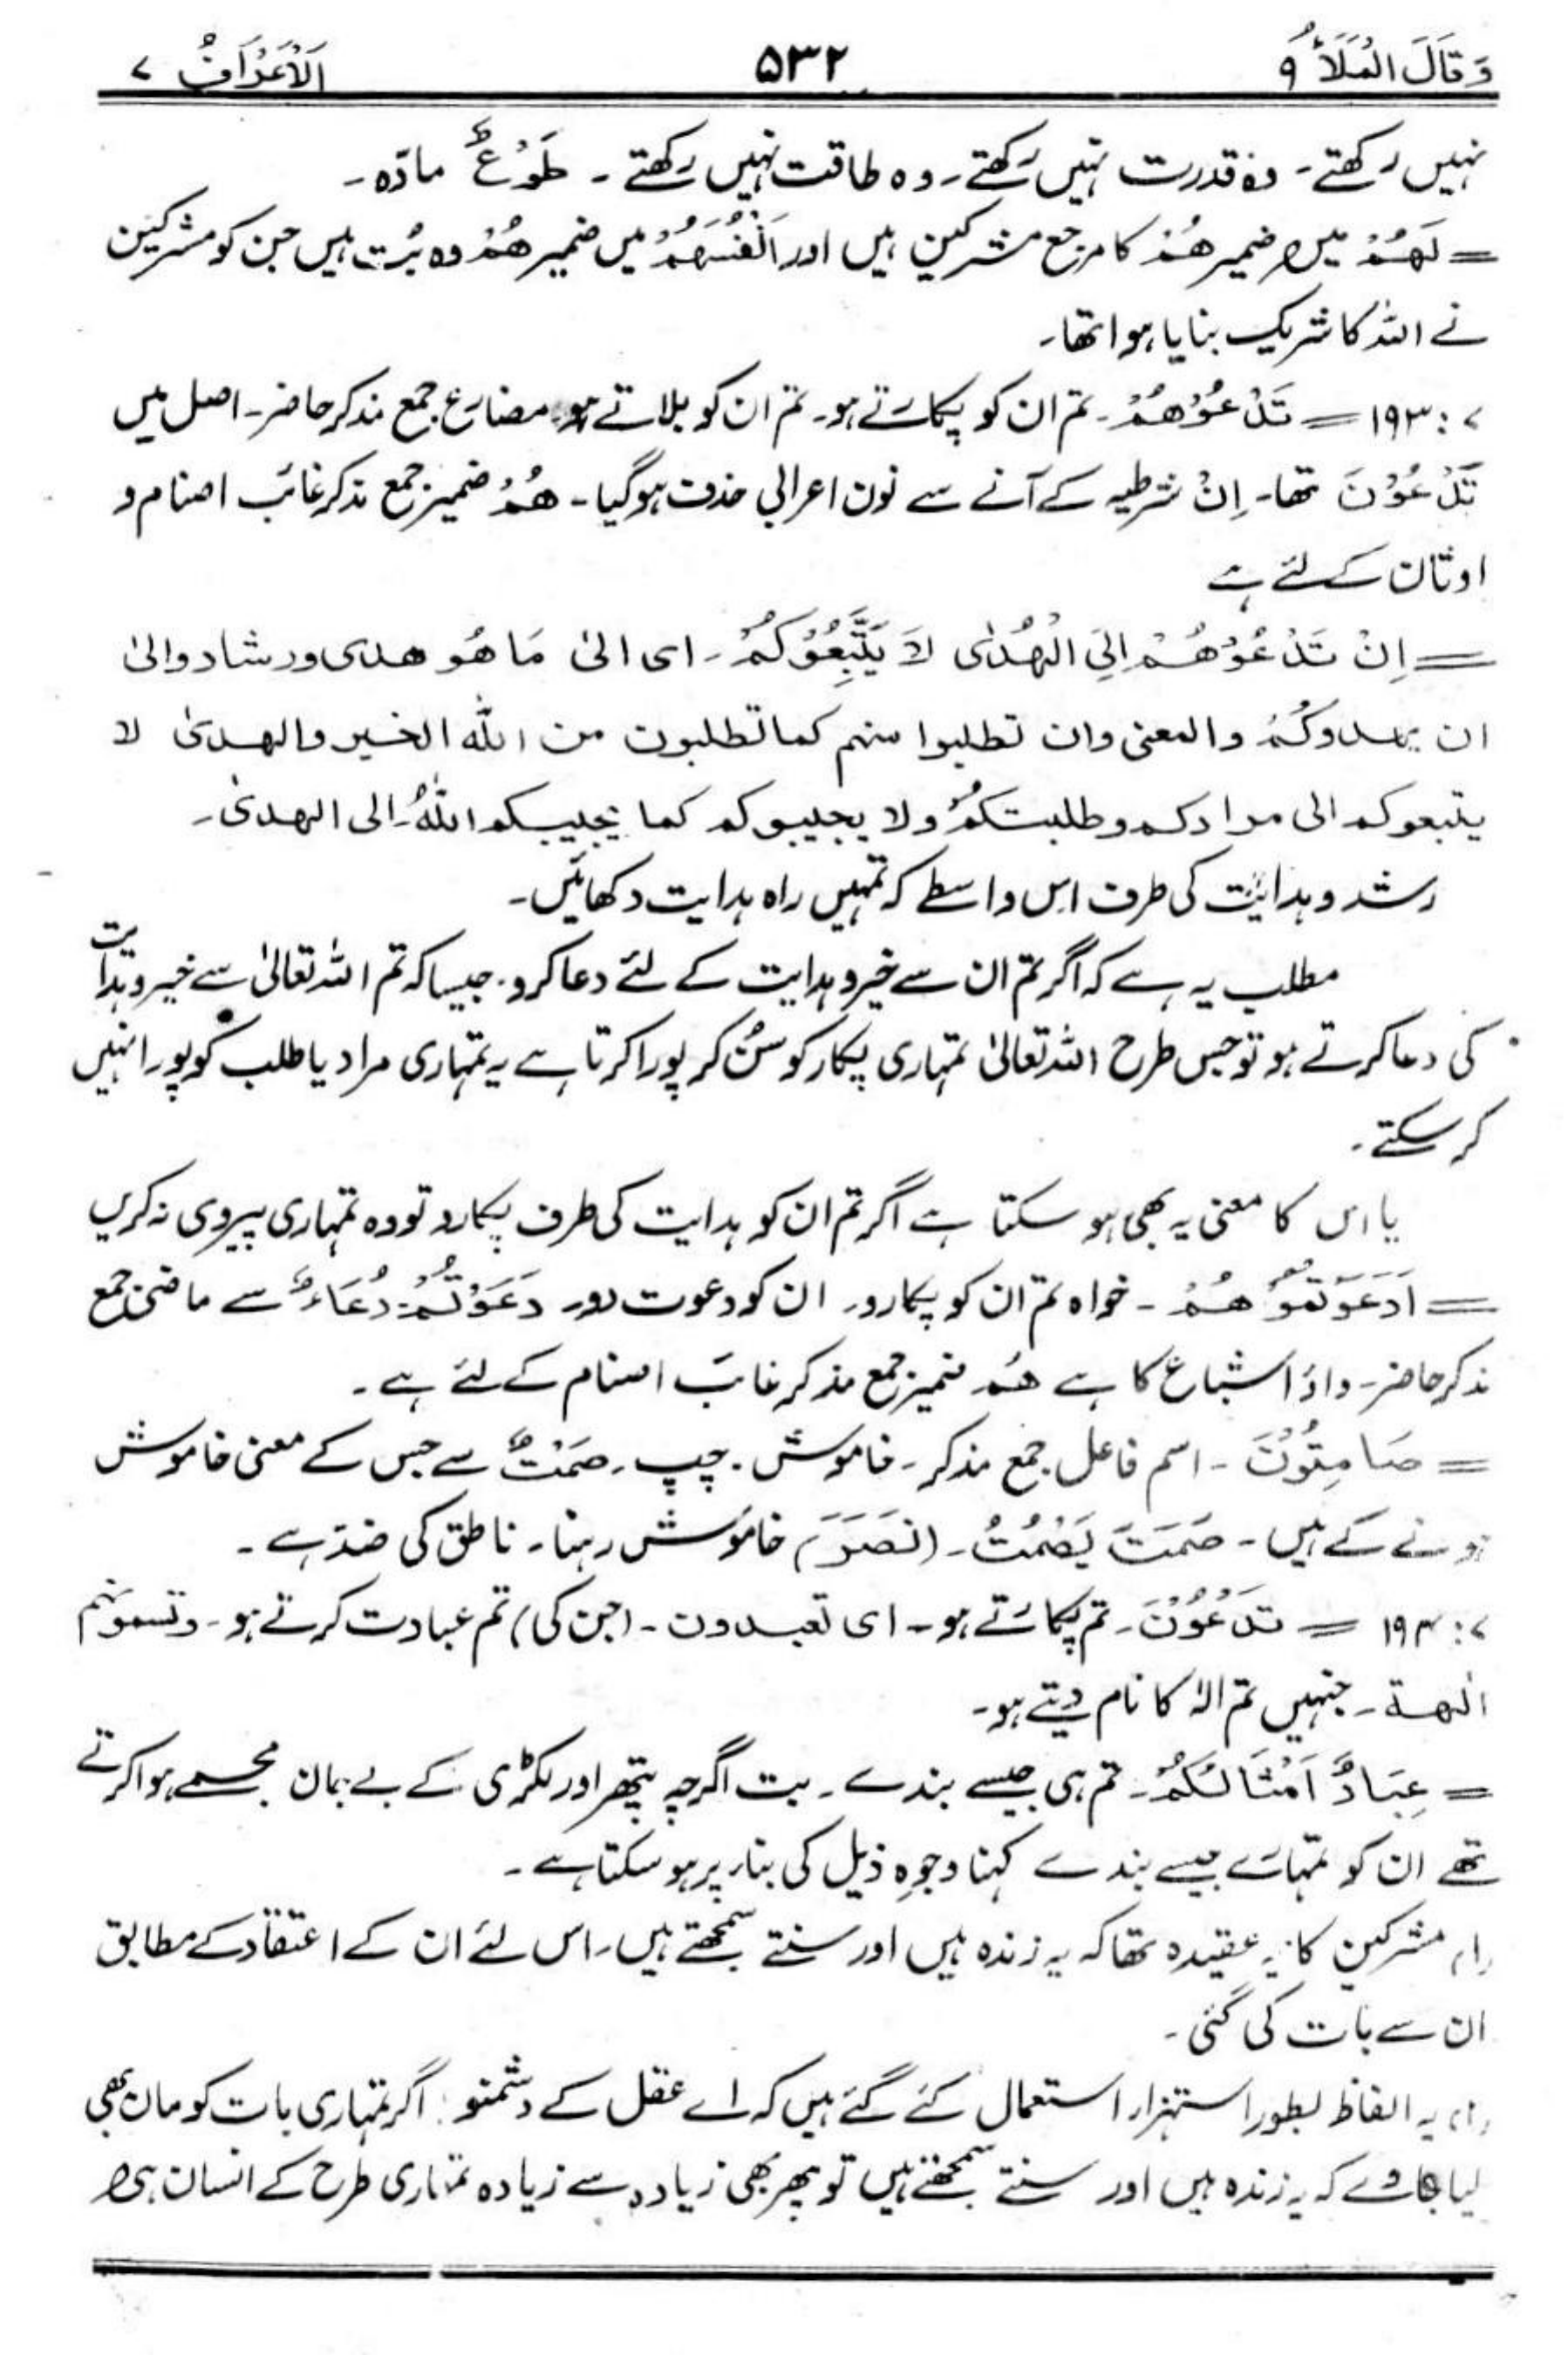 وَقَالَ الْمَلَأُ ۹ ۵۳۲ اَلْاَعْرَافُ ۷
نہیں رکھتے۔ وہ قدرت نہیں رکھتے۔ وہ طاقت نہیں رکھتے۔ طَوْعٌ مادّہ۔
= لَهُمْ میں ضمیر هُمْ کا مرجع مشرکین ہیں اور اَنْفُسَهُمْ میں ضمیر هُمْ وہ بُت ہیں جن کو مشرکین
نے اللہ کا شریک بنایا ہوا تھا۔
۷: ۱۹۳ = تَدْعُوْهُمْ۔ تم ان کو پکارتے ہو۔ تم ان کو بلاتے ہو۔ مضارع جمع مذکر حاضر۔ اصل میں
تَدْعُوْنَ تھا۔ اِنْ شرطیہ کے آنے سے نون اعرابی حذف ہو گیا۔ هُمْ ضمیر جمع مذکر غائب اصنام و
اوثان کے لئے ہے
= اِنْ تَدْعُوْهُمْ اِلَى الْهُدٰى لَا يَتَّبِعُوْكُمْ۔ ای الیٰ مَا هُو هدى ورشاد والیٰ
ان يهدوكُمْ والمعنى وان تطلبوا منهم كما تطلبون من الله الخير والهدىٰ لا
يتبعوكم الى مرادكم وطلبتكُمْ ولا يجيبوكم كما يجيبكم اللّٰهُ۔ الى الهدىٰ۔
رشد و ہدایت کی طرف اس واسطے کہ تمہیں راہ ہدایت دکھائیں۔
مطلب یہ ہے کہ اگر تم ان سے خیر و ہدایت کے لئے دعا کرو۔ جیسا کہ تم اللہ تعالیٰ سے خیر و ہدایت
کی دعا کرتے ہو تو جس طرح اللہ تعالیٰ تمہاری پکار کو سُن کر پورا کرتا ہے یہ تمہاری مراد یا طلب کو پورا نہیں
کر سکتے۔
یا اس کا معنی یہ بھی ہو سکتا ہے اگر تم ان کو ہدایت کی طرف پکارو تو وہ تمہاری پیروی نہ کریں
= اَدَعَوْتُمُوْهُمْ۔ خواہ تم ان کو پکارو۔ ان کو دعوت دو۔ دَعَوْتُمْ۔ دُعَاءٌ سے ماضی جمع
مذکر حاضر۔ واؤ اشباع کا ہے هُمْ ضمیر جمع مذکر غائب اصنام کے لئے ہے۔
= صَامِتُوْنَ۔ اسم فاعل جمع مذکر۔ خاموش۔ چپ۔ صَمْتٌ سے جس کے معنی خاموش
ہونے کے ہیں۔ صَمَتَ يَصْمُتُ۔ (نَصَرَ) خاموش رہنا۔ ناطق کی ضد ہے۔
۷: ۱۹۴ = تَدْعُوْنَ۔ تم پکارتے ہو۔ ای تعبدون۔ (جن کی) تم عبادت کرتے ہو۔ وتسمونهم
الٰهة۔ جنہیں تم الٰہ کا نام دیتے ہو۔
= عِبَادٌ اَمْثَالُكُمْ۔ تم ہی جیسے بندے۔ بت اگرچہ پتھر اور لکڑی کے بے جان مجسمے ہوا کرتے
تھے ان کو تمہارے جیسے بندے کہنا وجوہِ ذیل کی بنا پر ہو سکتا ہے۔
(۱) مشرکین کا یہ عقیدہ تھا کہ یہ زندہ ہیں اور سنتے سمجھتے ہیں۔ اس لئے ان کے اعتقاد کے مطابق
ان سے بات کی گئی۔
یہ الفاظ بطور استہزاء استعمال کئے گئے ہیں کہ اے عقل کے دشمنو۔ اگر تمہاری بات کو مان بھی
لیا جائے کہ یہ زندہ ہیں اور سنتے سمجھتے ہیں تو پھر بھی زیادہ سے زیادہ تمہاری طرح کے انسان ہی